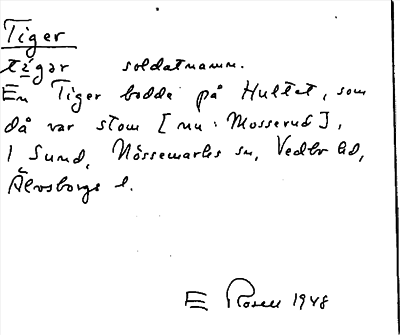 Tiger
tígər soldatnamn.
En Tiger bodde på Hultet, som
då var stom [nu: Mosserud],
i Sund, Nössemarks sn, Vedbo hd,
Älvsborgs l.
E Rosell 1948